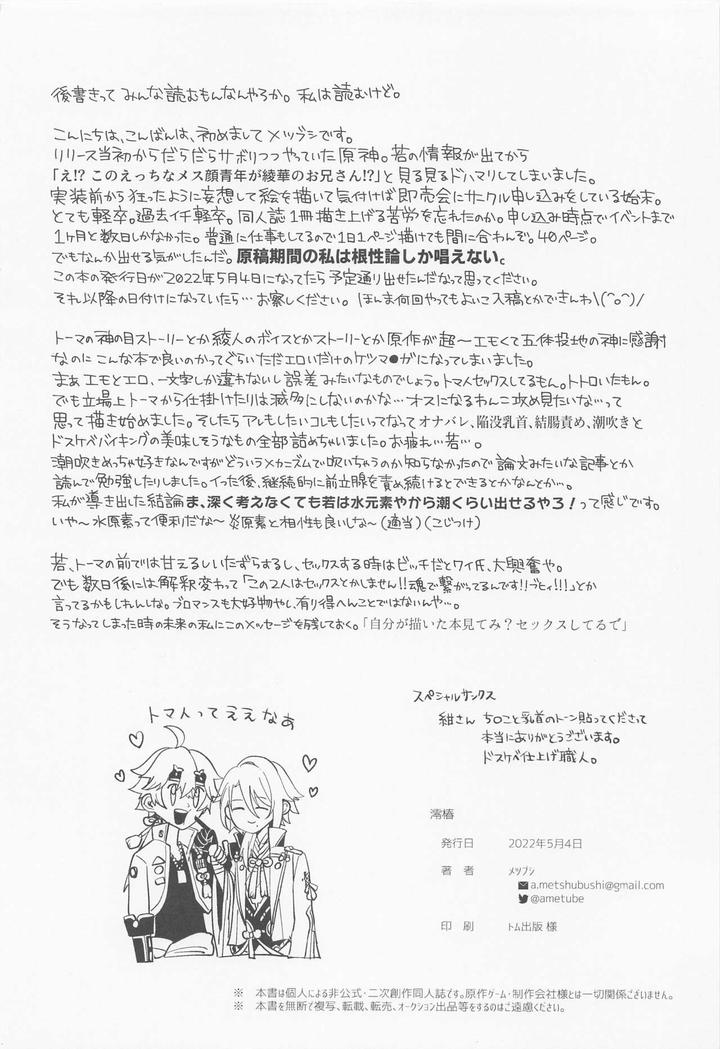 後書きって みんな読むもんなんやろか。私は読むけど。
こんにちは、こんばんは、初めましてメツブシです。
リリース当初からだらだらサボりつつやっていた原神。若の情報が出てから
「え!? このえっちなメス顔青年が綾華のお兄さん!?」と見る見るドハマりしてしまいました。
実装前から狂ったように妄想して絵を描いて気付けば即売会にサークル申し込みをしている始末。
とても軽卒。過去イチ軽卒。同人誌1冊描き上げる苦労を忘れたのか。申し込み時点でイベントまで
1ヶ月と数日しかなかった。普通に仕事もしてるので1日1ページ描けても間に合わんぞ。40ページ。
でもなんか出せる気がしたんだ。原稿期間の私は根性論しか唱えない。
この本の発行日が2022年5月4日になってたら予定通り出せたんだなって思ってください。
それ以降の日付けになっていたら…お察しください。ほんま何回やってもよいこ入稿とかできんわ\(^o^)/
トーマの神の目ストーリーとか綾人のボイスとかストーリーとか原作が超〜エモくて五体投地の神に感謝
なのに こんな本で良いのかってぐらいただエロいだけのケツマ●ガになってしまいました。
まぁ エモとエロ、一文字しか違わないし 誤差みたいなものでしょう。トマ人セックスしてるもん。トトロいたもん。
でも立場上トーマから仕掛けたりは滅多にしないのかな…オスになるわんこ攻め見たいな…って
思って描き始めました。そしたらアレもしたいコレもしたいってなってオナバレ、陥没乳首、結腸責め、潮吹きと
ドスケベバイキングの美味しそうなもの全部詰めちゃいました。お疲れ…若…。
潮吹きめっちゃ好きなんですがどういうメカニズムで吹いちゃうのか知らなかったので論文みたいな記事とか
読んで勉強したりしました。イった後、継続的に前立腺を責め続けるとできるとかなんとか…。
私が導き出した結論ま、深く考えなくても若は水元素やから潮くらい出せるやろ！って感じです。
いや〜水原素って便利だな〜炎原素と相性も良いしな〜(適当)(こじつけ)
若、トーマの前では甘えるしいたずらするし、セックスする時はビッチだとワイ氏、大興奮や。
でも数日後には解釈変わって「この2人はセックスとかしません!!魂で繋がってるんです!!ブヒィ!!!」とか
言ってるかもしれんしな。ブロマンスも大好物やし、有り得へんことではないんや…。
そうなってしまった時の未来の私にこのメッセージを残しておく。「自分が描いた本見てみ？セックスしてるで」
トマ人ってええなぁ
スペシャルサンクス
紺さん ちOこと乳首のトーン貼ってくださって
本当にありがとうございます。
ドスケベ仕上げ職人。
澪椿
発行日 2022年5月4日
著 者 メツブシ
a.metshubushi@gmail.com
@ametube
印 刷 トム出版 様
※ 本書は個人による非公式・二次創作同人誌です。原作ゲーム・制作会社様とは一切関係ございません。
※ 本書を無断で複写、転載、転売、オークション出品等をするのはご遠慮ください。